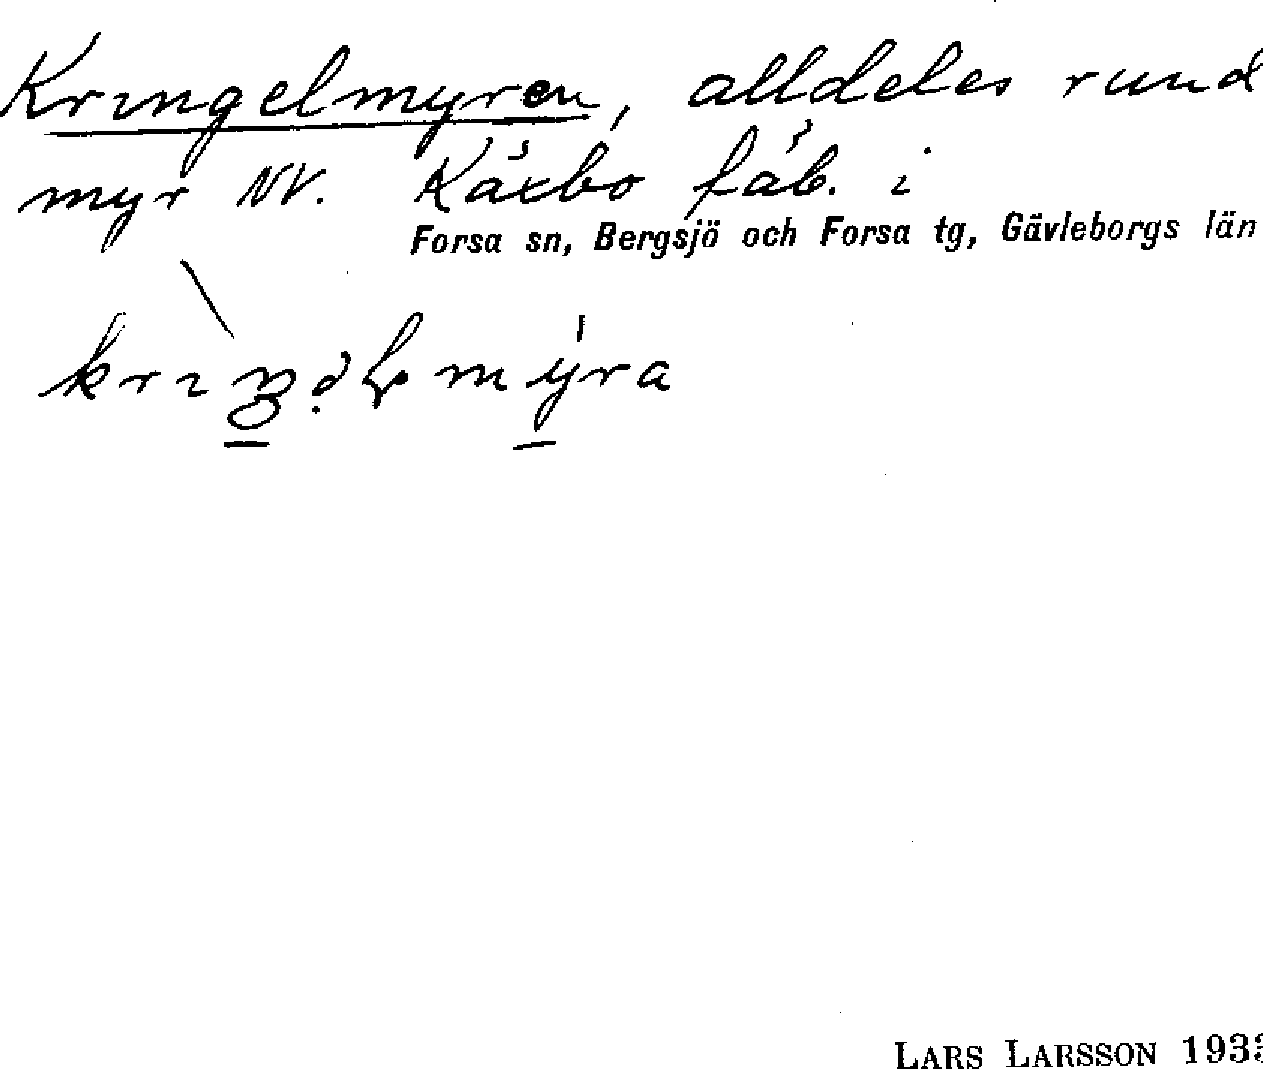 Kringelmyren, alldeles rund
myr NV. Käxbo fäb. i
Forsa sn, Bergsjö och Forsa tg, Gävleborgs län
LARS LARSSON 193